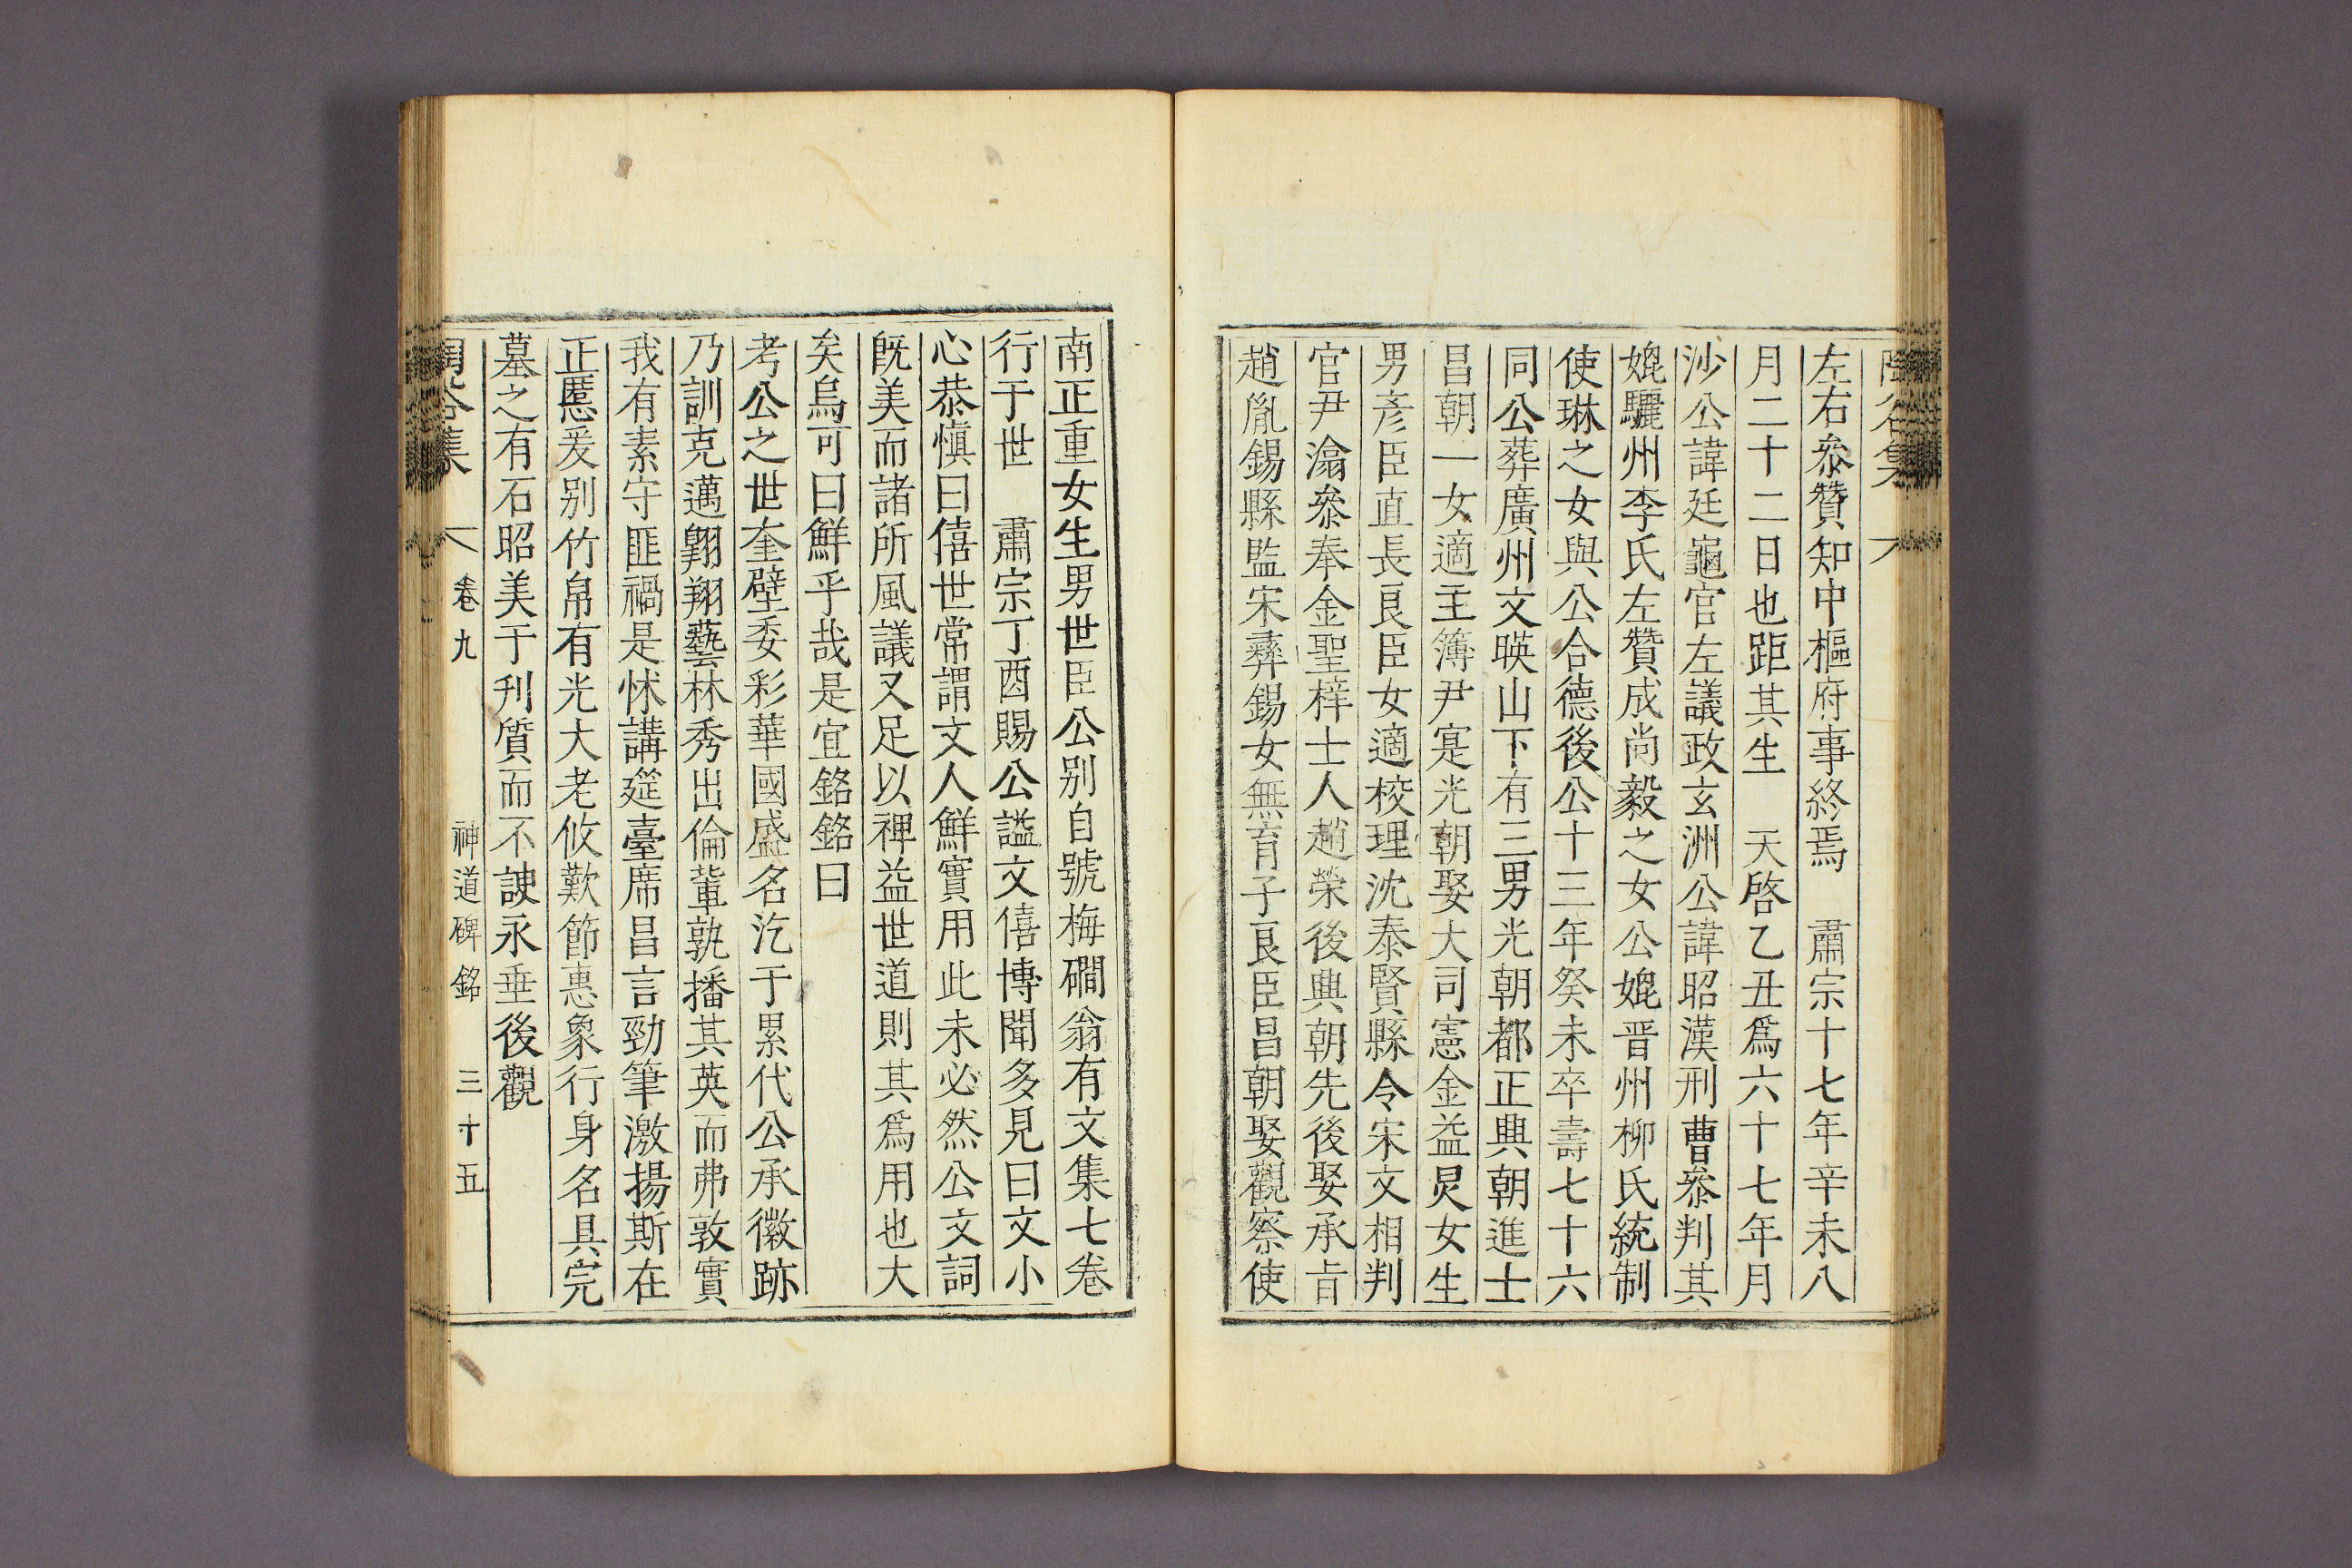 左右參贊知中樞府事終焉　肅宗十七年辛未八
月二十二日也距其生　天啓乙丑爲六十七年月
沙公諱廷龜官左議政玄洲公諱昭漢刑曹參判其
媲驪州李氏左贊成尚毅之女公媲晋州柳氏統制
使琳之女與公合德後公十三年癸未卒壽七十六
同公葬廣州文暎山下有三男光朝都正興朝進士
昌朝一女適主簿尹寔光朝娶大司憲金益炅女生
男彦臣直長良臣女適校理沈泰賢縣令宋文相判
官尹瀹參奉金聖梓士人趙榮後興朝先後娶承旨
趙胤錫縣監宋彛錫女無育子良臣昌朝娶觀察使
南正重女生男世臣公别自號梅磵翁有文集七卷
行于世　肅宗丁酉賜公謚文僖博聞多見曰文小
心恭愼曰僖世常謂文人鮮實用此未必然公文詞
旣美而諸所風議又足以裨益世道則其爲用也大
矣烏可曰鮮乎哉是宜銘銘曰
考公之世奎壁委彩華國盛名汔于累代公承徽跡
乃訓克邁翺翔藝林秀出倫軰孰播其英而弗敦實
我有素守匪禍是怵講筵臺席昌言勁筆激揚斯在
正慝爰别竹帛有光大老攸歎節惠象行身名具完
墓之有石昭美于刋質而不諛永垂後觀
陶谷集　卷九　神道碑銘　三十五